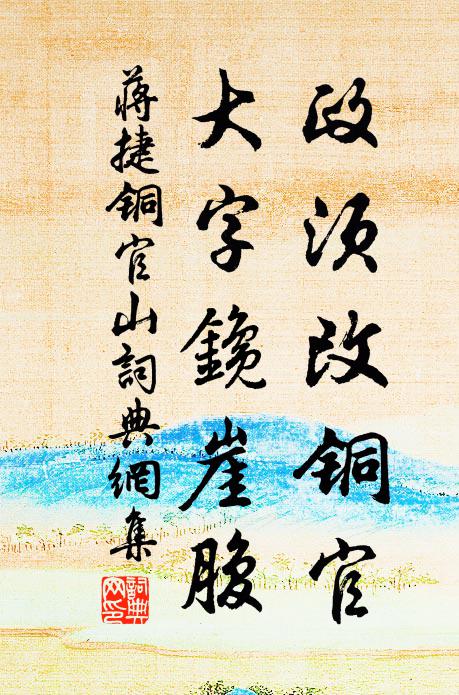 政須改銅官
大字鑱崖腹
蔣捷銅官山詞典網集
詞典
网